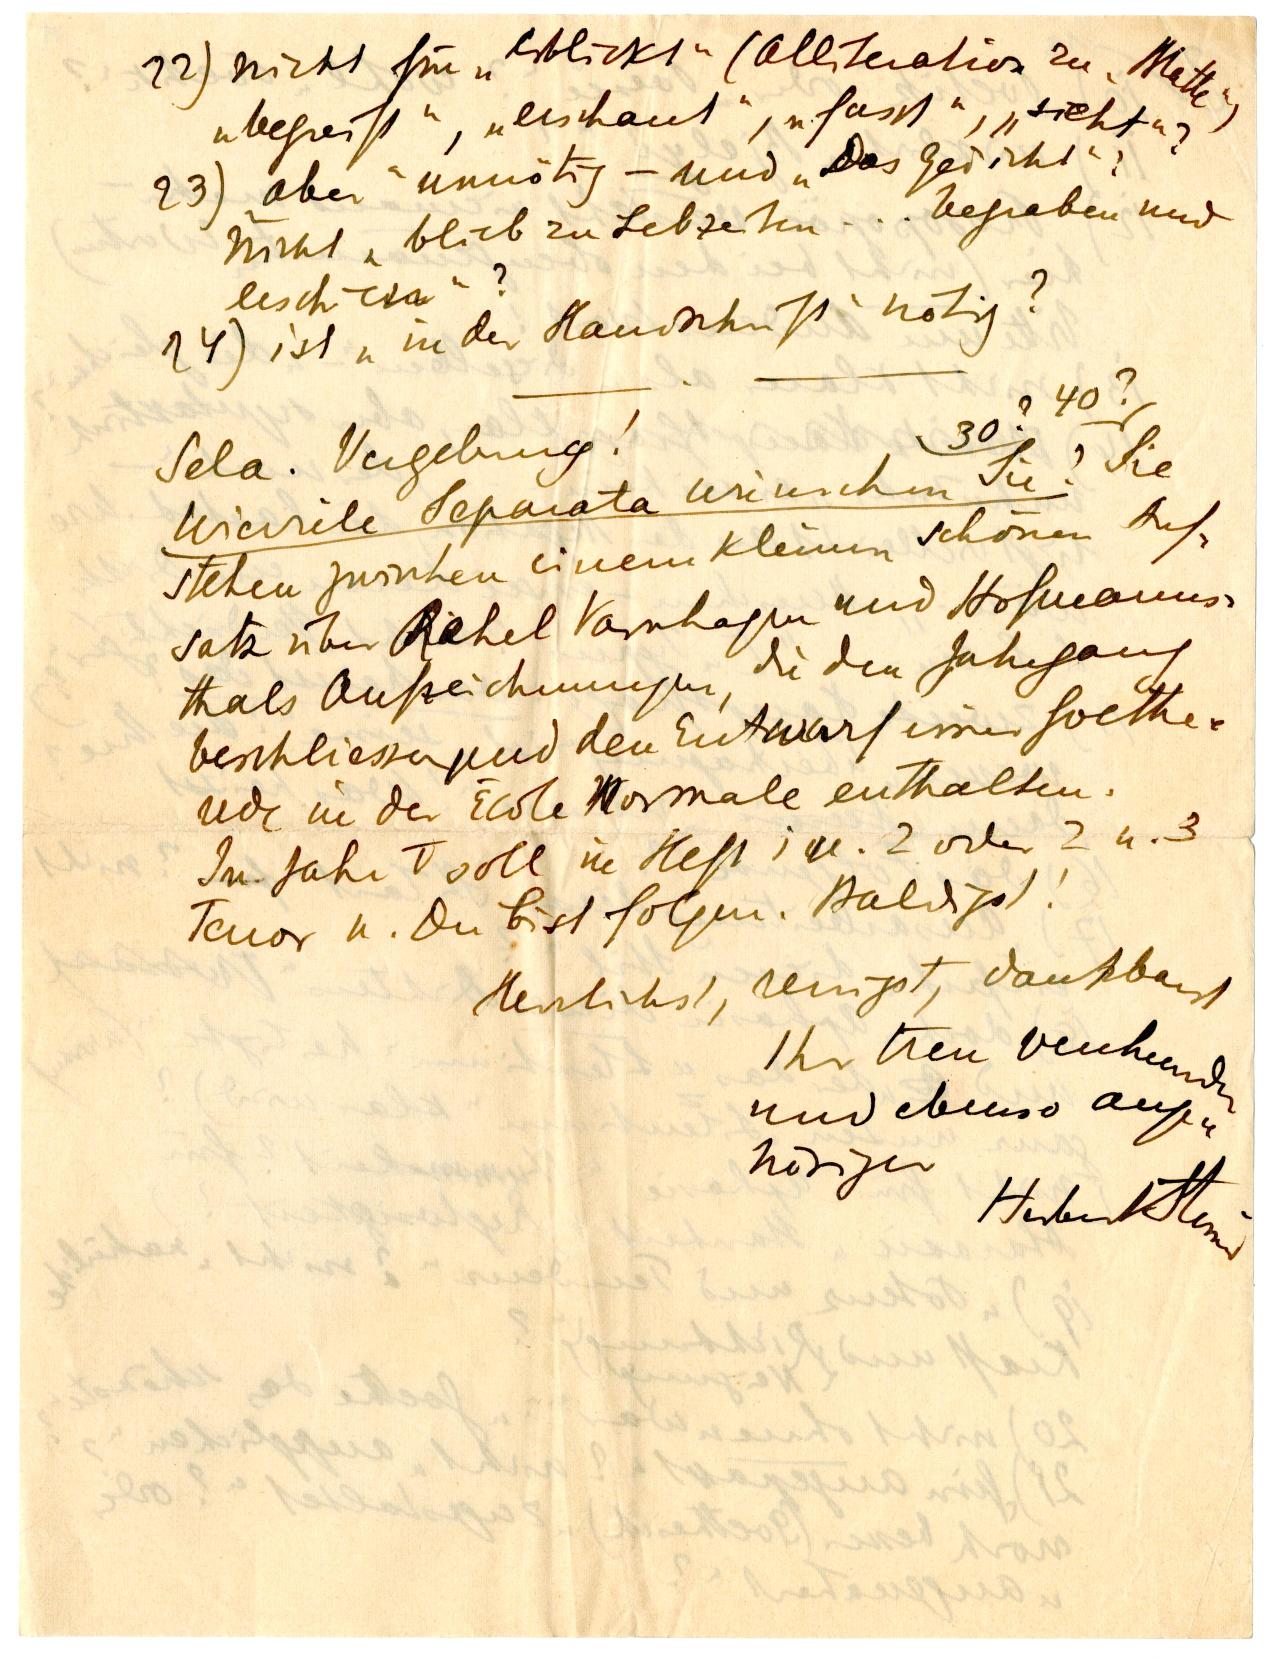 22) nicht für „erblickt“ (Alliteration zu „Matte“)
„begreift“, „erschaut“, „fasst“, „sieht“?
23) „aber“ unnötig – und „Das Gedicht“?
Nicht „blieb zu Lebzeiten ... begraben und
erschien“?
24) ist „in der Handschrift“ nötig?
30? 40?
Sela. Vergebung!
Wieviele Separata wünschen Sie? Sie
stehen zwischen einem kleinen schönen Auf-
satz über Rahel Varnhagen und Hofmanns-
thals Aufzeichnungen, die den Jahrgang
beschliessen und den Entwurf einer Goethe-
rede in der École Normale enthalten.
Im Jahr V soll in Heft 1 u. 2 oder 2 u. 3
Tenor u. Du bist folgen. Baldigst!
Herzlichst, dankbarst
Ihr treu
und ebenso ange-
höriger
Herbert Steiner